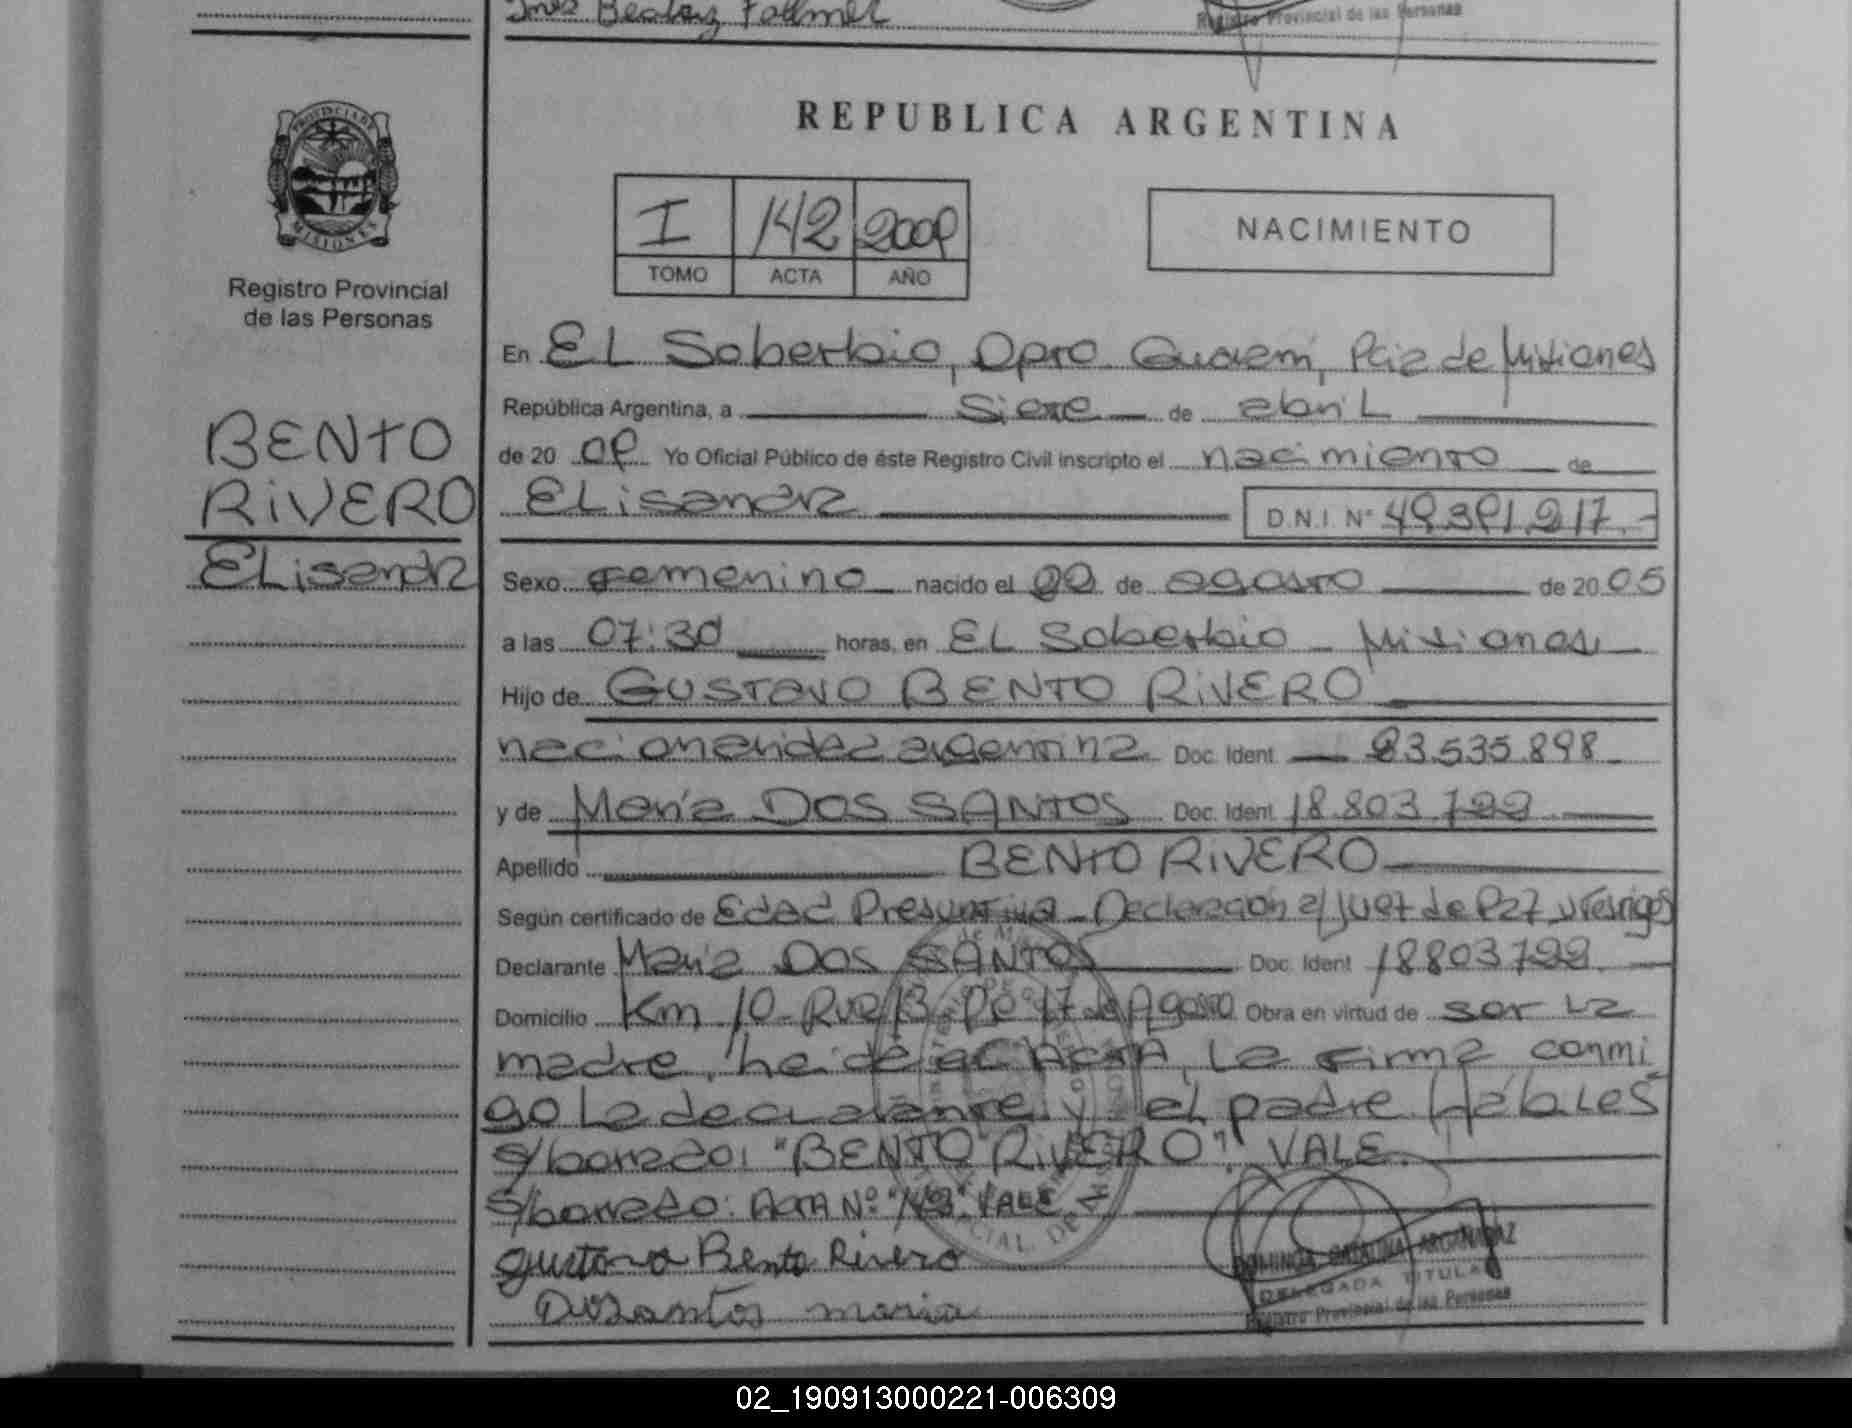 Inés Beatriz
Registro Provincial de las Personas
PROVINCIA DE
MISIONES
Registro Provincial
de las Personas
BENTO
RIVERO
ELisandra
REPUBLICA ARGENTINA
I 142 2009
TOMO ACTA AÑO
NACIMIENTO
En EL Soberbio, Dpto Guaraní, Pcia de Misiones
República Argentina, a siete de abril
de 20 09 Yo Oficial Público de éste Registro Civil inscripto el nacimiento de
ELisandra D.N.I. Nº 49.391.217.-
Sexo femenino nacido el 22 de agosto de 20 05
a las 07:30 horas, en EL Soberbio - Misiones
Hijo de GUSTAVO BENTO RIVERO
nacionalidad argentina Doc. Ident 23.535.898
y de María DOS SANTOS Doc. Ident 18.803.722
Apellido BENTO RIVERO
Según certificado de Edad Presuntiva - Declaración a/ Juez de Paz y testigos
Declarante María DOS SANTOS Doc. Ident 18803722
Domicilio Km 10 - 17 de Agosto Obra en virtud de ser La
madre, heide el ACTA, La firma conmi
go La declarante y el padre Hábiles
s/borrado: "BENTO RIVERO". VALE.
s/borrado: ACTA Nº "142". VALE
gustavo Bento Rivero
Dosantos maria
DOMINGA CATALINA ARGAÑARAZ
DELEGADA TITULAR
Registro Provincial de las Personas
02_190913000221-006309